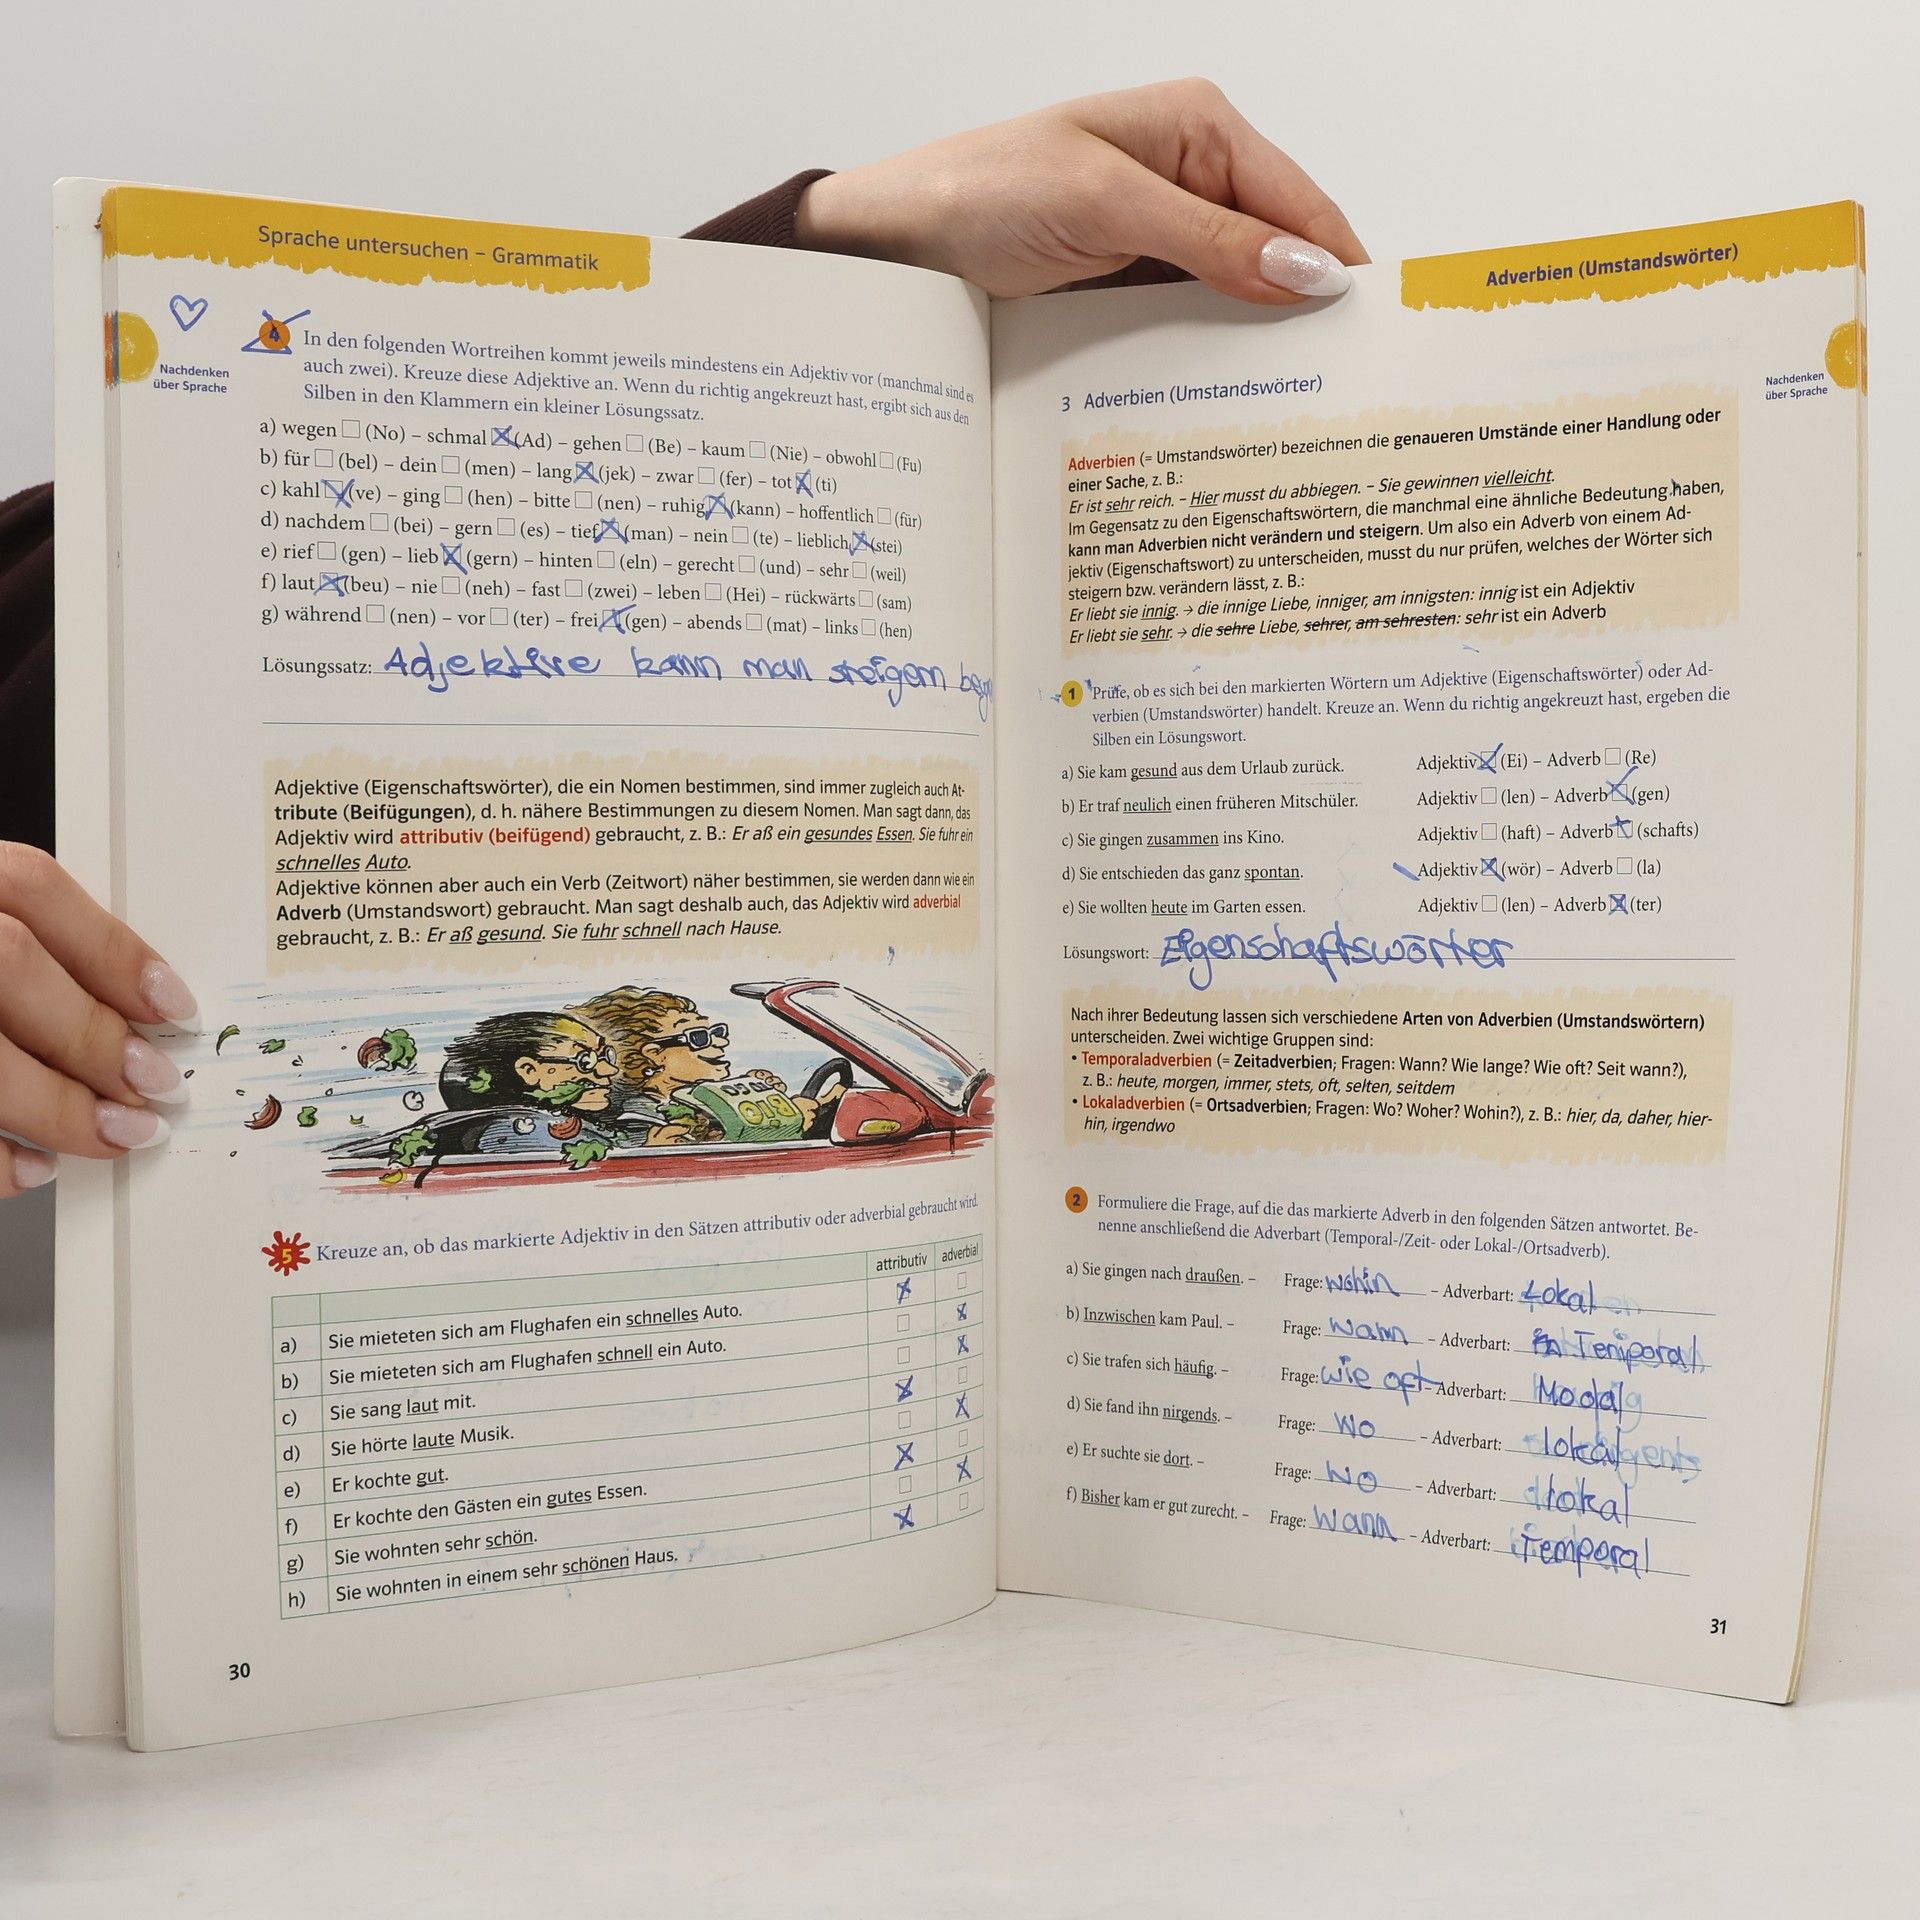 Sprache untersuchen – Grammatik
Nachdenken
über Sprache
4 In den folgenden Wortreihen kommt jeweils mindestens ein Adjektiv vor (manchmal sind es
auch zwei). Kreuze diese Adjektive an. Wenn du richtig angekreuzt hast, ergibt sich aus den
Silben in den Klammern ein kleiner Lösungssatz.
a) wegen ☐ (No) – schmal ☒ (Ad) – gehen ☐ (Be) – kaum ☐ (Nie) – obwohl ☐ (Fu)
b) für ☐ (bel) – dein ☐ (men) – lang ☒ (jek) – zwar ☐ (fer) – tot ☒ (ti)
c) kahl ☒ (ve) – ging ☐ (hen) – bitte ☐ (nen) – ruhig ☒ (kann) – hoffentlich ☐ (für)
d) nachdem ☐ (bei) – gern ☐ (es) – tief ☒ (man) – nein ☐ (te) – lieblich ☒ (stei)
e) rief ☐ (gen) – lieb ☒ (gern) – hinten ☐ (eln) – gerecht ☐ (und) – sehr ☐ (weil)
f) laut ☒ (beu) – nie ☐ (neh) – fast ☐ (zwei) – leben ☐ (Hei) – rückwärts ☐ (sam)
g) während ☐ (nen) – vor ☐ (ter) – frei ☒ (gen) – abends ☐ (mat) – links ☐ (hen)
Lösungssatz: Adjektive kann man steigern
Adjektive (Eigenschaftswörter), die ein Nomen bestimmen, sind immer zugleich auch At-
tribute (Beifügungen), d. h. nähere Bestimmungen zu diesem Nomen. Man sagt dann, das
Adjektiv wird attributiv (beifügend) gebraucht, z. B.: Er aß ein gesundes Essen. Sie fuhr ein
schnelles Auto.
Adjektive können aber auch ein Verb (Zeitwort) näher bestimmen, sie werden dann wie ein
Adverb (Umstandswort) gebraucht. Man sagt deshalb auch, das Adjektiv wird adverbial
gebraucht, z. B.: Er aß gesund. Sie fuhr schnell nach Hause.
BIO
5 Kreuze an, ob das markierte Adjektiv in den Sätzen attributiv oder adverbial gebraucht wird.
attributiv adverbial
a) Sie mieteten sich am Flughafen ein schnelles Auto. ☒ ☐
b) Sie mieteten sich am Flughafen schnell ein Auto. ☐ ☒
c) Sie sang laut mit. ☐ ☒
d) Sie hörte laute Musik. ☒ ☐
e) Er kochte gut. ☐ ☒
f) Er kochte den Gästen ein gutes Essen. ☒ ☐
g) Sie wohnten sehr schön. ☐ ☒
h) Sie wohnten in einem sehr schönen Haus. ☒ ☐
30
Adverbien (Umstandswörter)
Nachdenken
über Sprache
3 Adverbien (Umstandswörter)
Adverbien (= Umstandswörter) bezeichnen die genaueren Umstände einer Handlung oder
einer Sache, z. B.:
Er ist sehr reich. – Hier musst du abbiegen. – Sie gewinnen vielleicht.
Im Gegensatz zu den Eigenschaftswörtern, die manchmal eine ähnliche Bedeutung haben,
kann man Adverbien nicht verändern und steigern. Um also ein Adverb von einem Ad-
jektiv (Eigenschaftswort) zu unterscheiden, musst du nur prüfen, welches der Wörter sich
steigern bzw. verändern lässt, z. B.:
Er liebt sie innig. → die innige Liebe, inniger, am innigsten: innig ist ein Adjektiv
Er liebt sie sehr. → die sehre Liebe, sehrer, am sehresten: sehr ist ein Adverb
1 Prüfe, ob es sich bei den markierten Wörtern um Adjektive (Eigenschaftswörter) oder Ad-
verbien (Umstandswörter) handelt. Kreuze an. Wenn du richtig angekreuzt hast, ergeben die
Silben ein Lösungswort.
a) Sie kam gesund aus dem Urlaub zurück. Adjektiv ☒ (Ei) – Adverb ☐ (Re)
b) Er traf neulich einen früheren Mitschüler. Adjektiv ☐ (len) – Adverb ☒ (gen)
c) Sie gingen zusammen ins Kino. Adjektiv ☐ (haft) – Adverb ☒ (schafts)
d) Sie entschieden das ganz spontan. Adjektiv ☒ (wör) – Adverb ☐ (la)
e) Sie wollten heute im Garten essen. Adjektiv ☐ (len) – Adverb ☒ (ter)
Lösungswort: Eigenschaftswörter
Nach ihrer Bedeutung lassen sich verschiedene Arten von Adverbien (Umstandswörtern)
unterscheiden. Zwei wichtige Gruppen sind:
• Temporaladverbien (= Zeitadverbien; Fragen: Wann? Wie lange? Wie oft? Seit wann?),
z. B.: heute, morgen, immer, stets, oft, selten, seitdem
• Lokaladverbien (= Ortsadverbien; Fragen: Wo? Woher? Wohin?), z. B.: hier, da, daher, hier-
hin, irgendwo
2 Formuliere die Frage, auf die das markierte Adverb in den folgenden Sätzen antwortet. Be-
nenne anschließend die Adverbart (Temporal-/Zeit- oder Lokal-/Ortsadverb).
a) Sie gingen nach draußen. – Frage: wohin – Adverbart: Lokal
b) Inzwischen kam Paul. – Frage: wann – Adverbart: Temporal
c) Sie trafen sich häufig. – Frage: wie oft – Adverbart: Modal
d) Sie fand ihn nirgends. – Frage: wo – Adverbart: lokal
e) Er suchte sie dort. – Frage: wo – Adverbart: lokal
f) Bisher kam er gut zurecht. – Frage: wann – Adverbart: Temporal
31